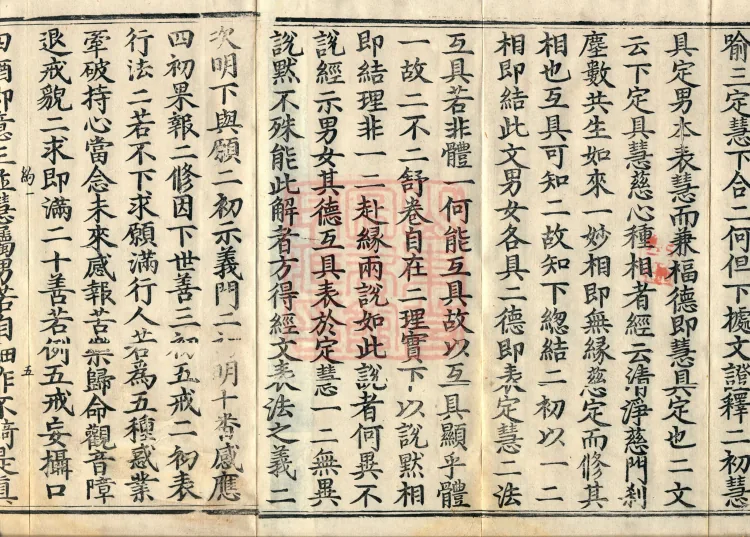 喻三定慧下合二何但下據文證釋二初慧
具定男本表慧而兼福德即慧具定也二文
云下定具慧慈心種相者經云淸淨慈門刹
塵數共生如來一妙相即無緣慈定而修其
相也互具可知二故知下總結二初以一二
相即結此文男女各具二德即表定慧二法
互具若非體一何能互具故以互具顯乎體
一故二不二舒卷自在二理實下以說默相
即結理非一二赴緣兩說如此說者何異不
說經示男女其德互具表於定慧一二無異
說默不殊能此解者方得經文表法之義二
次明下與願二初示義門二初明十番感應
四初果報二修因下世善三初五戒二初表
行法二若不下求願滿行人若爲五種惑業
牽破持心當念未來感報苦果歸命觀音障
退戒貌二求即滿二十善若例五戒妄攝口
四酒即意三並慧屬男若自細作不
納一
五